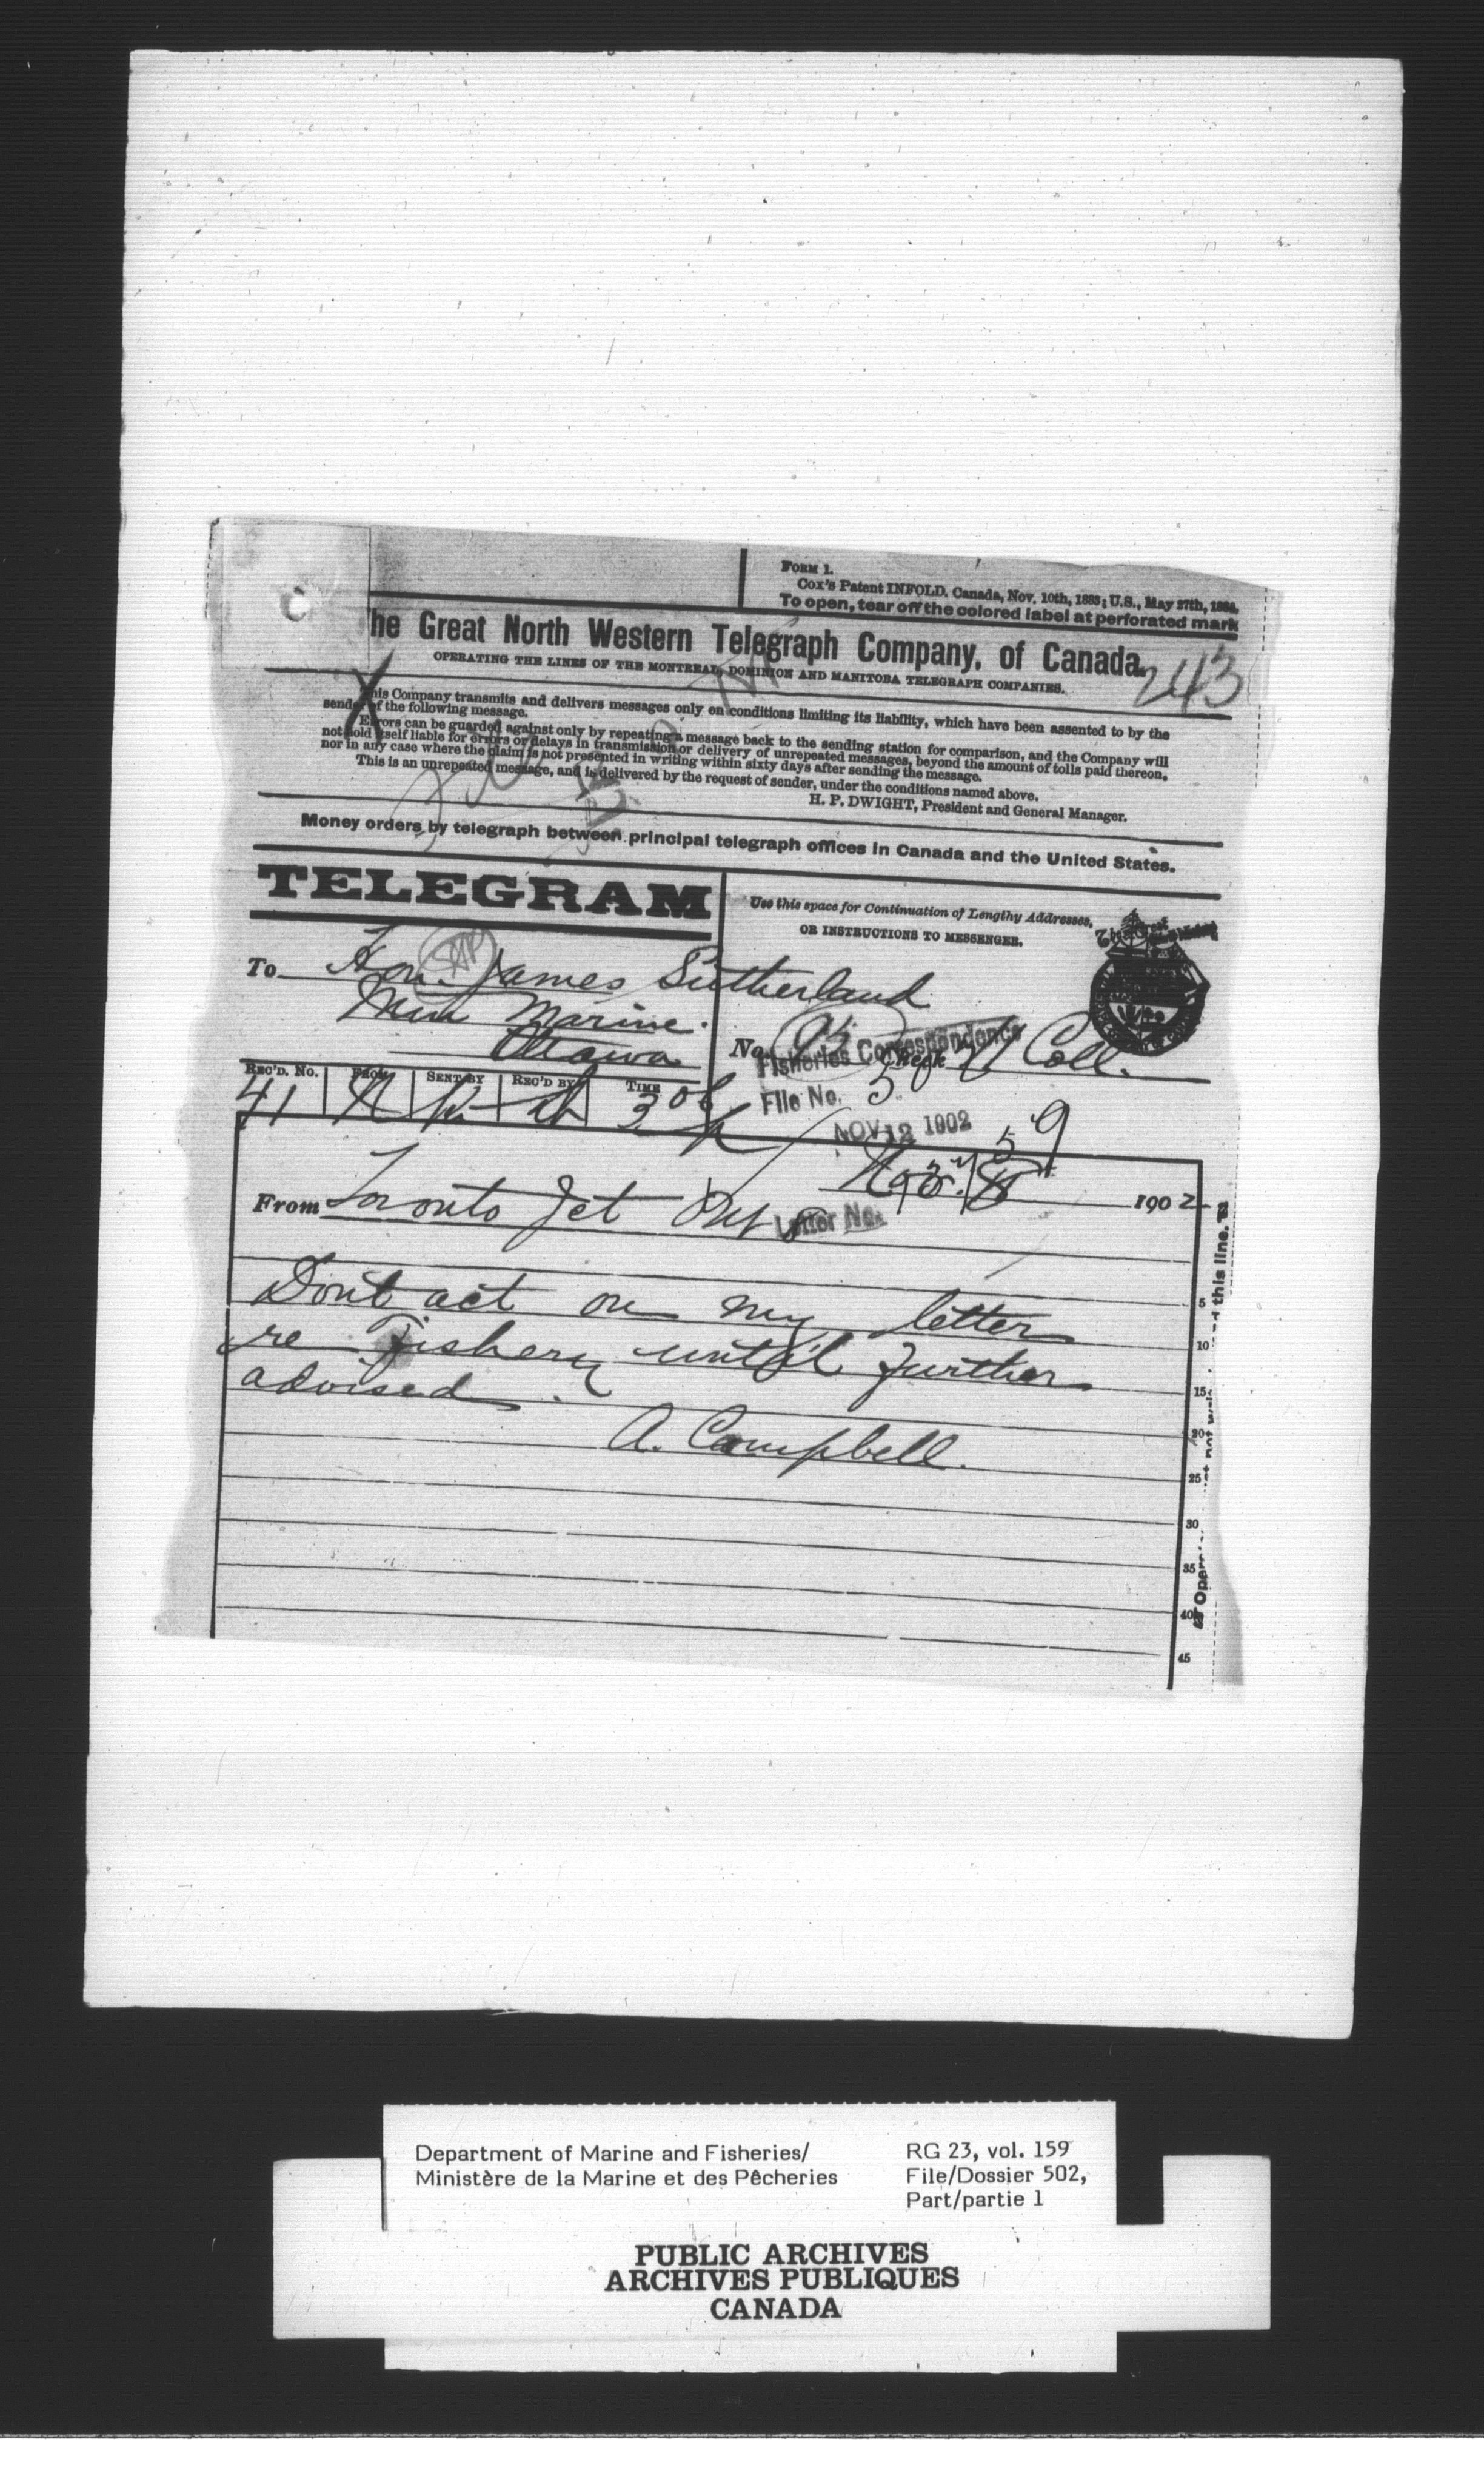 FORM 1.
Cox's Patent INFOLD. Canada, Nov. 10th, 1883; U.S., May 27th, 1884.
To open, tear off the colored label at perforated mark
he Great North Western Telegraph Company, of Canada.
243
OPERATING THE LINES OF THE MONTREAL, DOMINION AND MANITOBA TELEGRAPH COMPANIES.
his Company transmits and delivers messages only on conditions limiting its liability, which have been assented to by the
sender of the following message.
Errors can be guarded against only by repeating a message back to the sending station for comparison, and the Company will
not hold itself liable for errors or delays in transmission or delivery of unrepeated messages, beyond the amount of tolls paid thereon,
nor in any case where the claim is not presented in writing within sixty days after sending the message.
This is an unrepeated message, and is delivered by the request of sender, under the conditions named above.
H. P. DWIGHT, President and General Manager.
Money orders by telegraph between principal telegraph offices in Canada and the United States.
TELEGRAM
Use this space for Continuation of Lengthy Addresses,
OR INSTRUCTIONS TO MESSENGER.
To Hon. James Sutherland
Min Marine.
Ottawa
No. Check Coll.
Fisheries Correspondence
REC'D. No. FROM SENT BY REC'D BY TIME
41
File No.
NOV 12 1902
Nov. 1902
From Toronto Jct Ont
Letter No.
Dont act on my letter
re Fishery until further
advised.
A. Campbell.
5
10
15
20
25
30
35
40
45
this line.
Department of Marine and Fisheries/
Ministère de la Marine et des Pêcheries
RG 23, vol. 159
File/Dossier 502,
Part/partie 1
PUBLIC ARCHIVES
ARCHIVES PUBLIQUES
CANADA